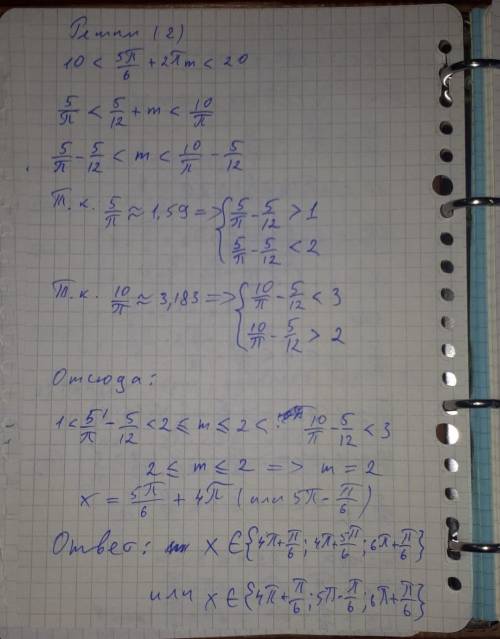 Решим (2)
10 < 5π/6 + 2πm < 20
5/π < 5/12 + m < 10/π
5/π - 5/12 < m < 10/π - 5/12
Т.к. 5/π ≈ 1,59 => { 5/π - 5/12 > 1
5/π - 5/12 < 2
Т.к. 10/π ≈ 3,183 => { 10/π - 5/12 < 3
10/π - 5/12 > 2
Отсюда:
1 < 5/π - 5/12 < 2 ≤ m ≤ 2 < 10/π - 5/12 < 3
2 ≤ m ≤ 2 => m = 2
x = 5π/6 + 4π (или 5π - π/6)
Ответ: x ∈ {4π+π/6; 4π+5π/6; 6π+π/6}
или x ∈ {4π+π/6; 5π-π/6; 6π+π/6}